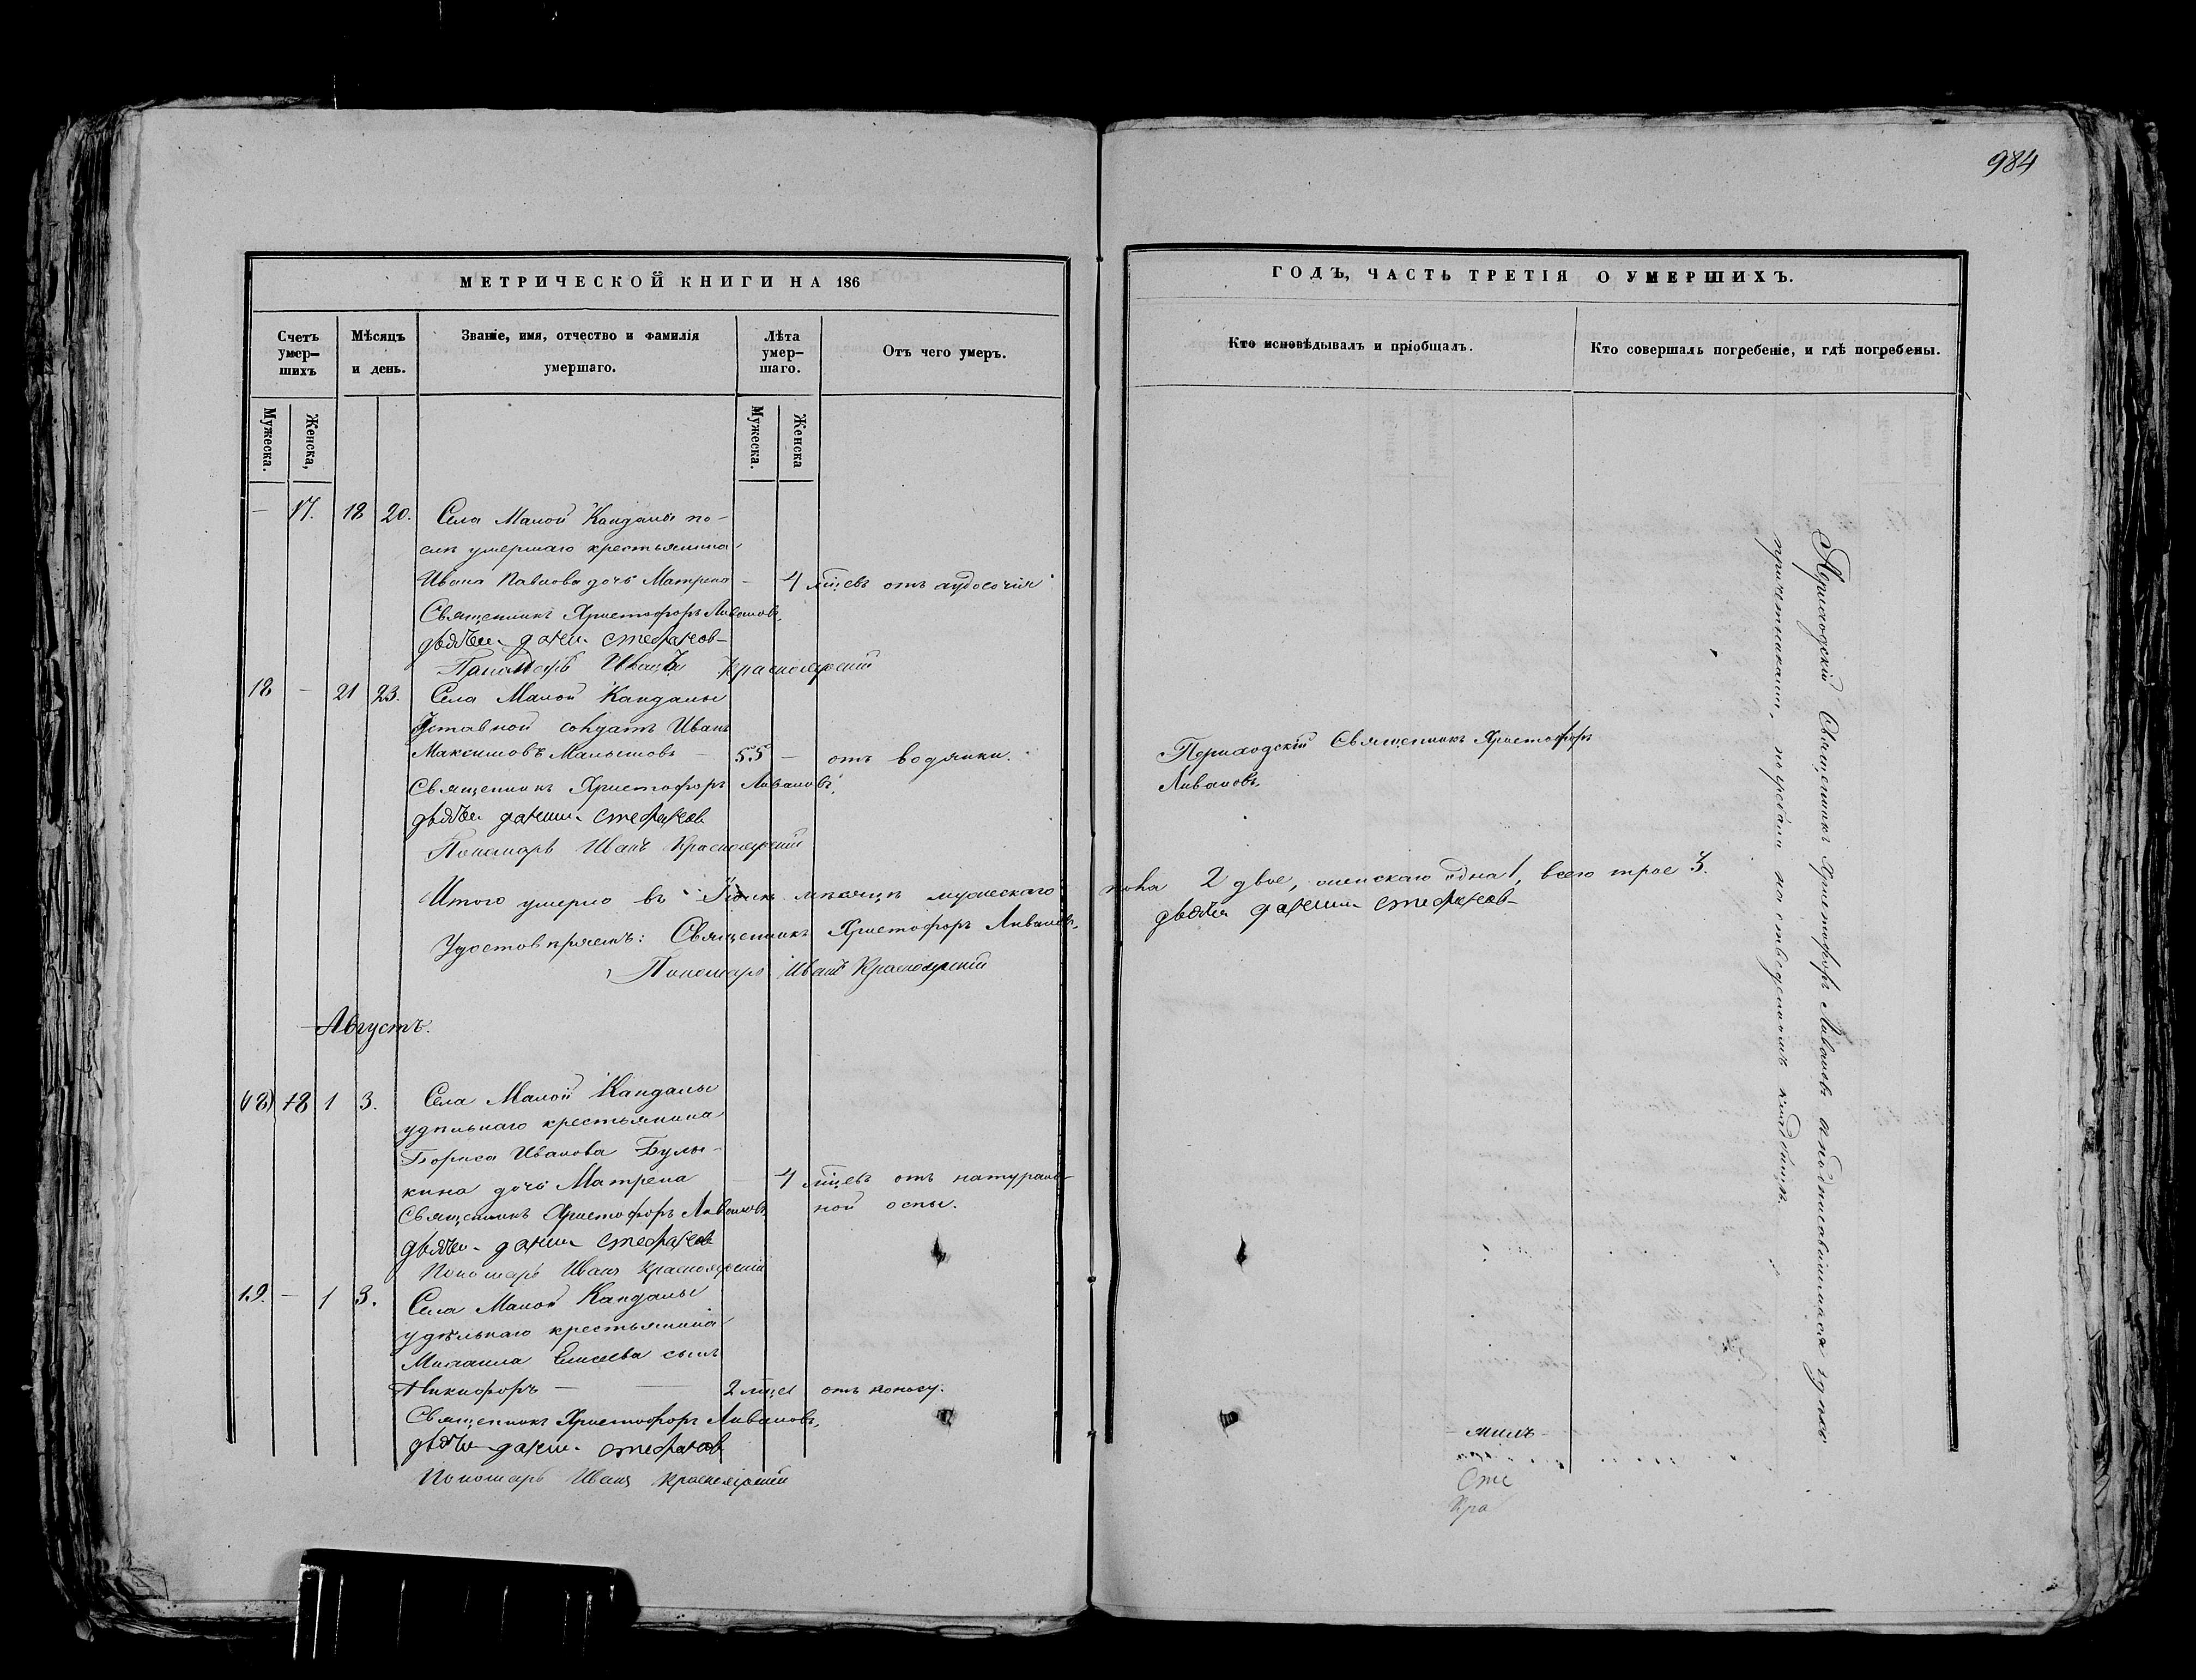 984
МЕТРИЧЕСКОЙ КНИГИ НА 186
Счетъ умер-шихъ
Мѣсяцъ и день.
Званіе, имя, отчество и фамилія умершаго.
Лѣта умер-шаго.
Отъ чего умеръ.
Мужеска.
Женска,
Мужеска.
Женска
— 17. 18 20. Села Малой Кандалы по-
слѣ умершаго крестьянина
Ивана Павлова дочь Матрена — 4 мѣсцъ отъ
Священникъ Христофоръ Ливановъ.
Стефановъ
Пономарь Иванъ Красноярскій
18 — 21 23. Села Малой Кандалы
солдатъ Иванъ
Максимовъ Малышовъ — 55 — отъ водянки.
Священникъ Христофоръ Ливановъ.
Стефановъ
Пономарь Иванъ Красноярскій
Итого умерло въ Іюлѣ мѣсяцѣ мужескаго
Удостовѣряемъ: Священникъ Христофоръ Ливановъ.
Пономарь Иванъ Красноярскій
Августъ.
(18) 18 1 3. Села Малой Кандалы
удѣльнаго крестьянина
Бориса Иванова Булы-
кина дочь Матрена — 4 мѣсцъ отъ натураль-
Священникъ Христофоръ Ливановъ. ной оспы.
Стефановъ
Пономарь Иванъ Красноярскій
19. — 1 3. Села Малой Кандалы
удѣльнаго крестьянина
Михаила Елисеева сынъ
Никифоръ — — 2 мѣсц отъ поносу.
Священникъ Христофоръ Ливановъ.
Стефановъ
Пономарь Иванъ Красноярскій
ГОДЪ, ЧАСТЬ ТРЕТІЯ О УМЕРШИХЪ.
Кто исповѣдывалъ и пріобщалъ.
Кто совершалъ погребеніе, и гдѣ погребены.
Приходскій Священникъ Христофоръ
Ливановъ.
пола 2 двое, женскаго одна 1, всего трое 3.
Стефановъ
Приходскій Священникъ Христофоръ Ливановъ
причетниками, погребали на отведенномъ кладбищѣ.
Сте
Кра